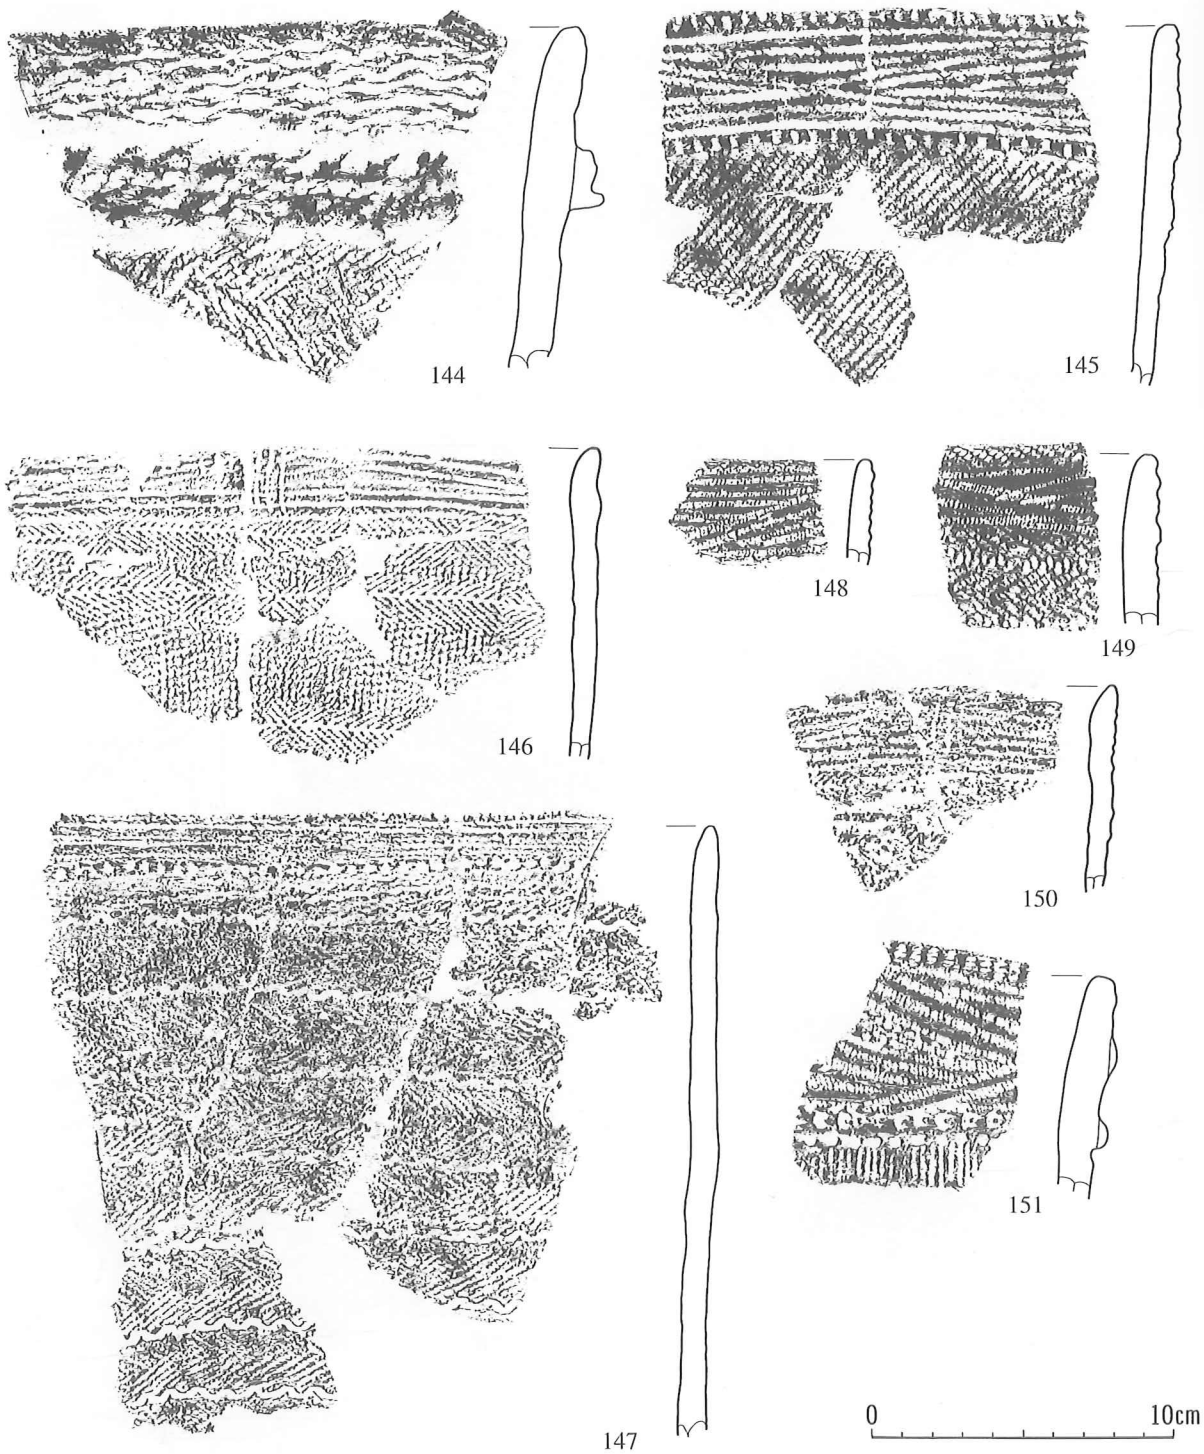 144
145
146
148
149
150
151
147
0 10cm